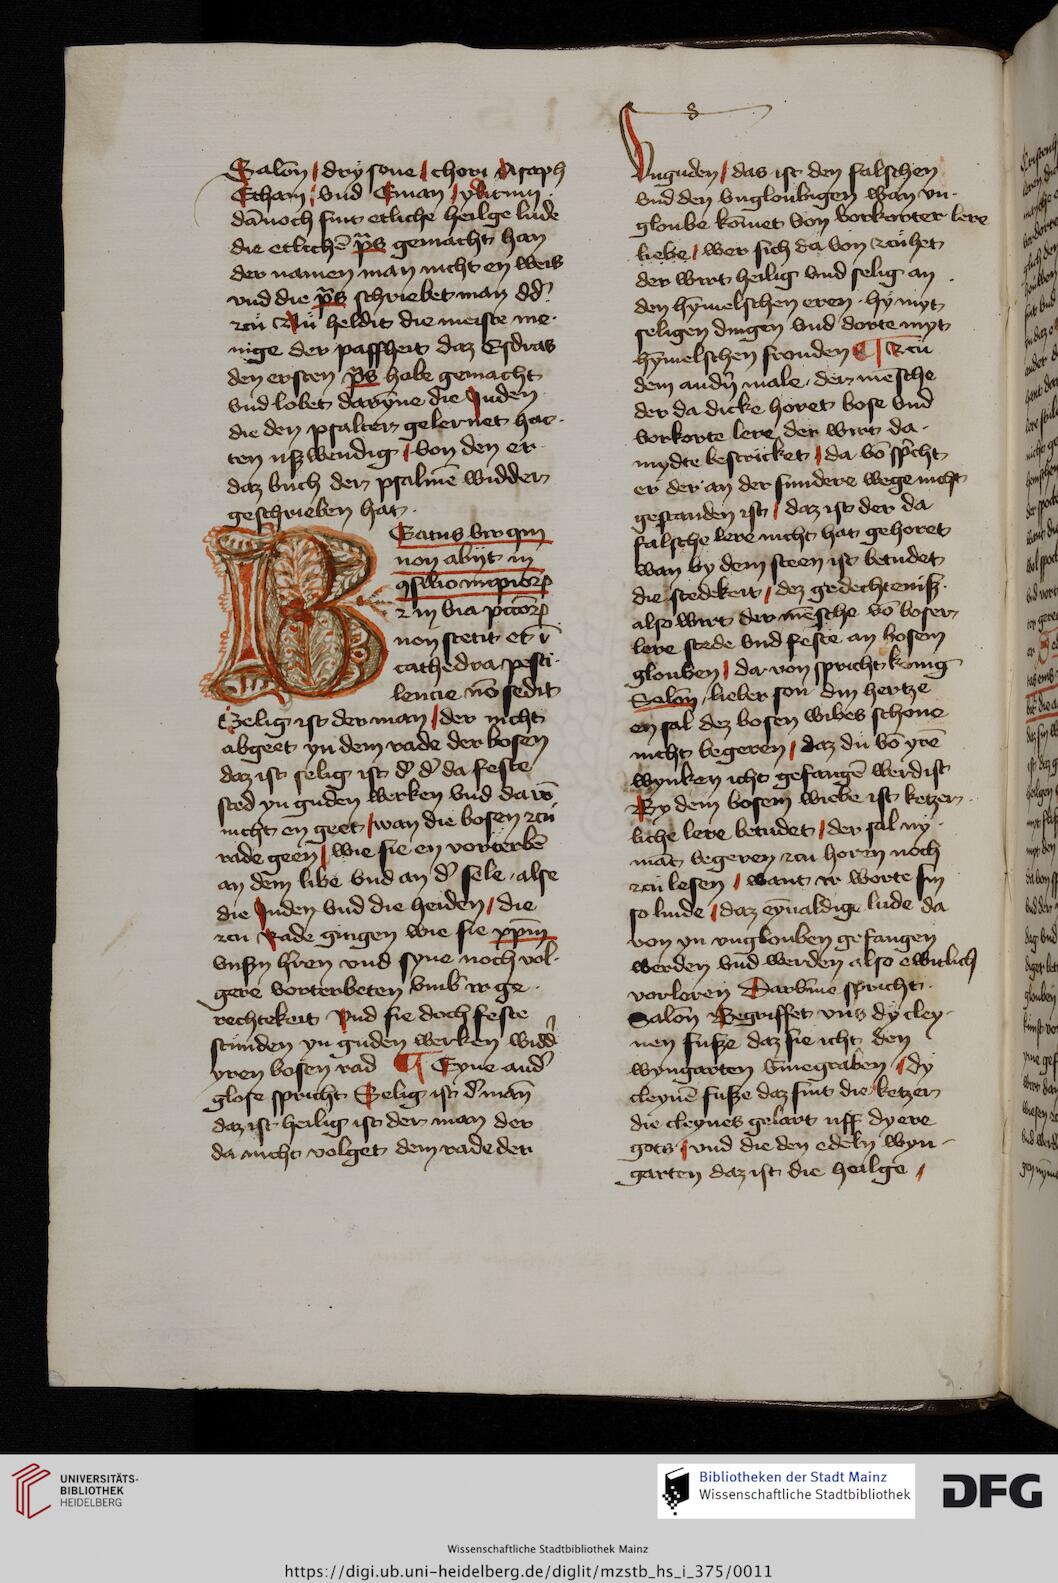 s
Salon̄ / dry sone / chori Asaph
Ethan / vnd Eman / yditiun ·
dan̄och sint etliche heilge lude
die etlichē ps gemacht han
der namen man nicht en weis
vnd die ps schriebet man dd
zcu Nu heldit die meiste me·
nige der paffheit daz Esdras
den ersten ps habe gemacht
vnd lobet darȳne die Juden
die den psalter gelernet hat·
ten uszwendig / von den er
daz buch der psalmē widder
geschrieben hat ·
Beatus vir qui
non abijt in
9silio impiorꝝ
z in via pccōrꝝ
non stetit et ī
cathedra pesti·
lencie nō sedit
Selig ist der man / der nicht
abgeet yn dem rade der bosen
daz ist selig ist d' d' da feste
sted yn guden werken vnd da vō
nicht en geet / wan die bosen zcu
rade geen / wie sie en vorterbē
an dem libe vnd an d' sele · alse
die Juden vnd die heiden / die
zcu Rade gingen wie sie xp̄m
vnsn h'ren vnd syne noch vol·
gere vorterbeten vmb ir ge·
rechtekeit Vnd sie doch feste
stunden yn guden werken widd'
yren bosen rad ¶ Eyne and'
glose spricht Selig ist d' man
daz ist heilig ist der man der
da nicht volget dem rade der
Vnguden / das ist den falschen
vnd den vngloubigen wan vn·
gloube kom̄et von vorkorter lere
liebe / wer sich da von zcuhet
der wirt heilig vnd selig an
den hȳmelschen eren · hy myt
seligen dingen vnd dorte myt
hȳmelschen frouden ¶ Zcu
dem andn̄ male · der mēsche
der da dicke horet bose vnd
vorkorte lere der wirt da·
mydte bestricket / da vō sp'cht
er der an der sundere wege nicht
gestanden ist / daz ist der da
falsche lere nicht hat gehoret
wan by dem steen ist betudet
die stedekeit / dez gedechtenisz·
also wirt der mēsche vō boser
lere stede vnd feste an bosem
glouben / dar von spricht konig
Salon̄ / lieber son din hertze
en sal dez bosen wibes schone
nicht begeren / daz du vō yrē
wynken icht gefangē werdist
By dem bosem wiebe ist ketzer
liche lere betudet / der sal ny·
mat begeren zcu horen noch
zcu lesen / want ir worte sin
so linde / daz eynualdige lude da
von yn vnglouben gefangen
werden vnd werden also ewiclich
vorloren Darvm̄e spricht ·
Salon̄ Begriffet vns dy cley·
nen fusze daz sie icht den
wyngarten vm̄egraben / dy
cleynē fusze daz sint die ketzer
die cleynes gelart uff dy ere
gots / vnd die den edeln wyn·
garten daz ist die heilge /
UNIVERSITÄTS-
BIBLIOTHEK
HEIDELBERG
Bibliotheken der Stadt Mainz
Wissenschaftliche Stadtbibliothek
DFG
Wissenschaftliche Stadtbibliothek Mainz
https://digi.ub.uni-heidelberg.de/diglit/mzstb_hs_i_375/0011